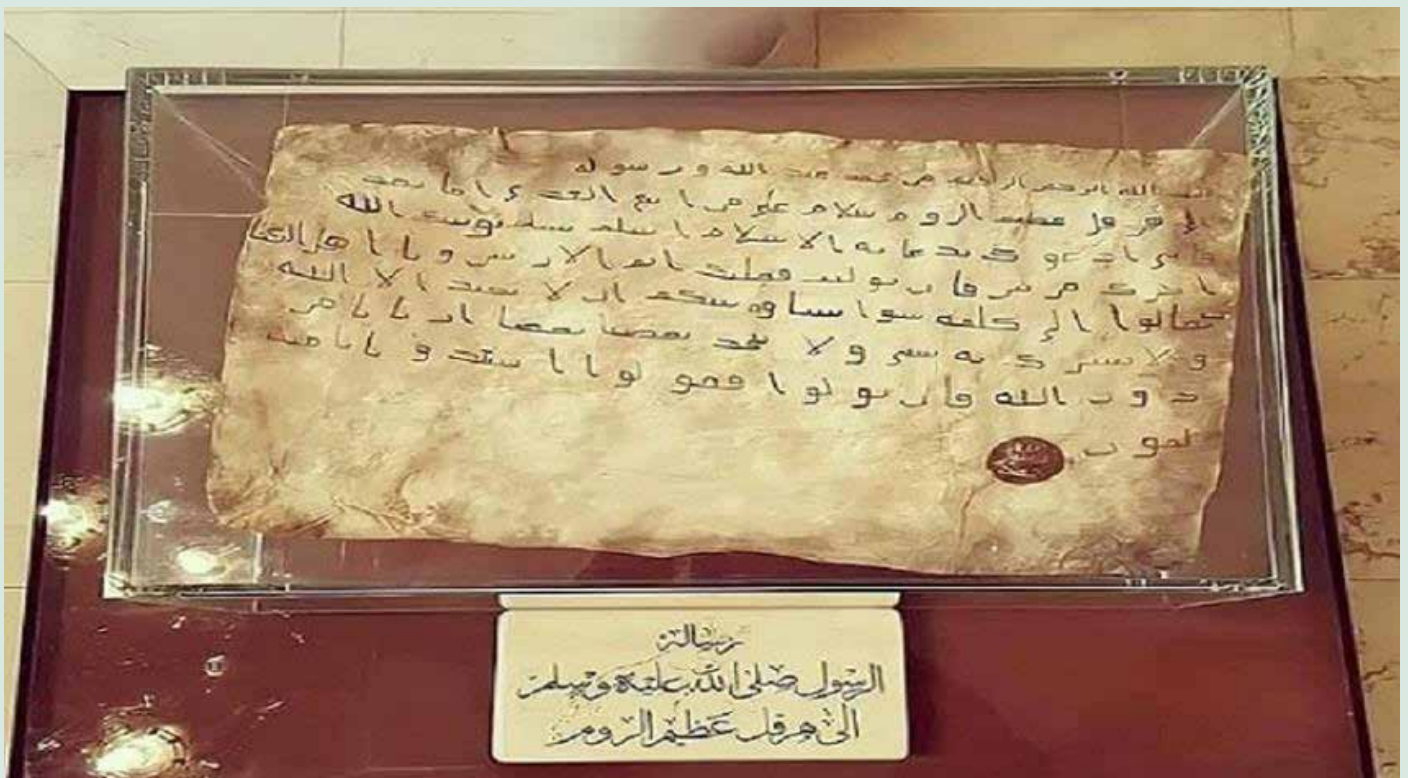 بسم الله الرحمن الرحيم من محمد عبد الله و رسوله
إلى هرقل عظيم الروم سلام على من اتبع الهدى أما بعد
فإني أدعوك بدعاية الاسلام أسلم تسلم يؤتك الله
أجرك مرتين فإن توليت فعليك إثم الأريسيين و يا أهل الكتا
تعالوا إلى كلمة سوا بيننا وبينكم أن لا نعبد الا الله
ولا نشرك به شيئ و لا يتخذ بعضنا بعضا أربابا من
دون الله فإن تولوا فقولوا اشهدو بأنا مس
لمون
رسالة
الرسول صلى الله عليه وسلم
الى هرقل عظيم الروم